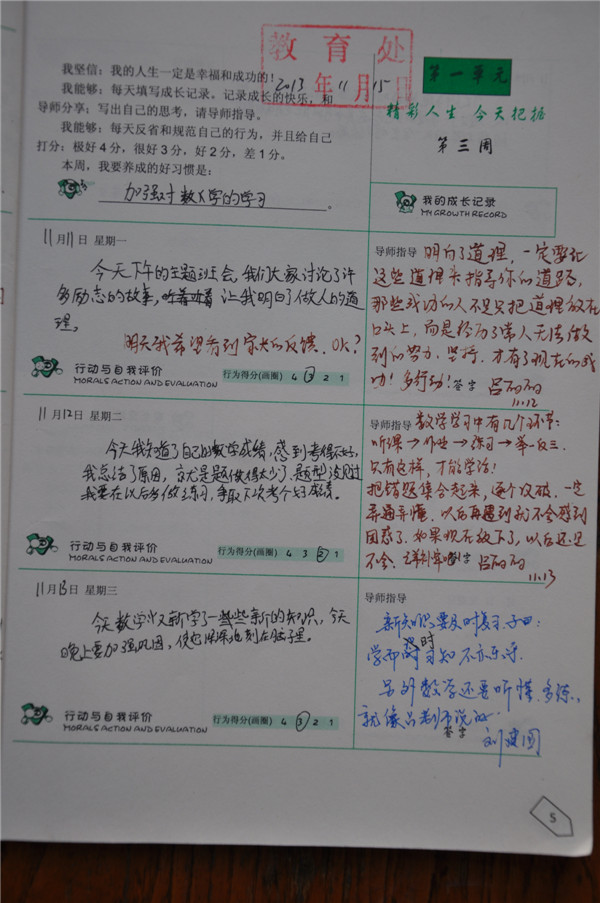 教育处
2013年11月15日
我坚信：我的人生一定是幸福和成功的！
我能够：每天填写成长记录。记录成长的快乐，和
导师分享；写出自己的思考，请导师指导。
我能够：每天反省和规范自己的行为，并且给自己
打分：极好4分，很好3分，好2分，差1分。
本周，我要养成的好习惯是：
加强对数学的学习。
第一单元
精彩人生 今天把握
第三周
我的成长记录
MY GROWTH RECORD
11月11日 星期一
今天下午的主题班会，我们大家讨论了许
多励志的故事，让我明白了做人的道
理。
明天我希望看到家长的反馈，OK？
行动与自我评价
MORALS ACTION AND EVALUATION
行为得分(画圈) 4 3 2 1
导师指导 明白了道理，一定要记
这些道理来指导你的道路，
那些成功的人不是只把道理放在
口头上，而是经历了常人无法做
到的努力、坚持，才有了现在的成
功！多行动！签字 吕丽丽
11.12
11月12日 星期二
今天我知道了自己的数学成绩，感到考得不好，
我总结了原因，就是题做得太少了，题型没见过
我要在以后多做练习，争取下次考个好成绩。
行动与自我评价
MORALS ACTION AND EVALUATION
行为得分(画圈) 4 3 2 1
导师指导 数学学习中有几个环节：
听课→作业→练习→举一反三．
只有这样，才能学活！
把错题集合起来，逐个攻破，一定
弄通弄懂，以后再遇到就不会感到
困惑了．如果现在放下了，以后还是
不会， 签字 吕丽丽
11.13
11月13日 星期三
今天数学又新学了一些新的知识，今天
晚上要加强巩固，使它深深地刻在脑子里。
行动与自我评价
MORALS ACTION AND EVALUATION
行为得分(画圈) 4 3 2 1
导师指导
新知识要及时复习．子曰：
学而时习知不亦乐乎．
另外数学还要听懂．多练．
就像吕老师说的．
签字
刘建国
5